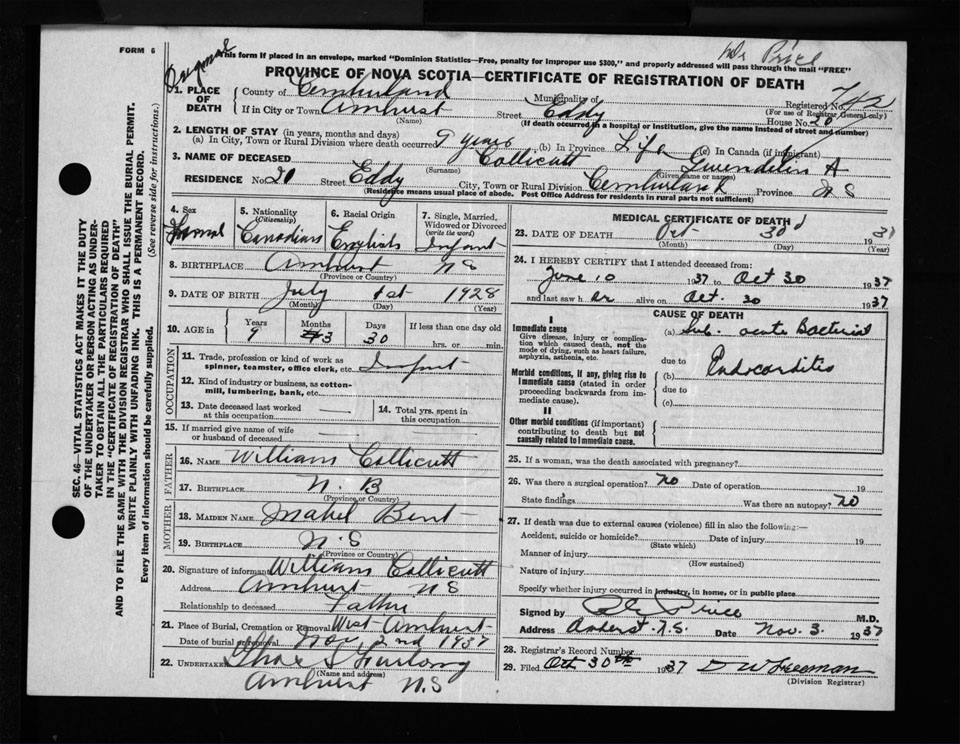 FORM 6
Original
Dr Price
This form if placed in an envelope, marked "Dominion Statistics—Free, penalty for improper use $300," and properly addressed will pass through the mail "FREE"
PROVINCE OF NOVA SCOTIA—CERTIFICATE OF REGISTRATION OF DEATH
1. PLACE OF DEATH County of Cumberland Municipality of Registered No. 742
(For use of Registrar General only)
If in City or Town Amherst Street Eddy House No. 20
(Name) (If death occurred in a hospital or institution, give the name instead of street and number)
2. LENGTH OF STAY (in years, months and days)
(a) In City, Town or Rural Division where death occurred 9 years (b) In Province Life (c) In Canada (if immigrant)
3. NAME OF DECEASED Collicutt Gwendolin A
(Surname) (Given name or names)
RESIDENCE No. 20 Street Eddy City, Town or Rural Division Cumberland Province N S
(Residence means usual place of abode. Post Office Address for residents in rural parts not sufficient)
4. Sex 5. Nationality (Citizenship) 6. Racial Origin 7. Single, Married, Widowed or Divorced (write the word)
Canadians English Infant
8. BIRTHPLACE Amherst N S
(Province or Country)
9. DATE OF BIRTH July 1st 1928
(Month) (Day) (Year)
10. AGE in Years Months Days If less than one day old
9 3 30 hrs. or min.
OCCUPATION
11. Trade, profession or kind of work as spinner, teamster, office clerk, etc. Infant
12. Kind of industry or business, as cotton-mill, lumbering, bank, etc.
13. Date deceased last worked at this occupation
14. Total yrs. spent in this occupation
15. If married give name of wife or husband of deceased
FATHER
16. NAME William Collicutt
17. BIRTHPLACE N. B
(Province or Country)
MOTHER
18. MAIDEN NAME Isabel Bent
19. BIRTHPLACE N. S
(Province or Country)
20. Signature of informant William Collicutt
Address Amherst N S
Relationship to deceased Father
21. Place of Burial, Cremation or Removal West Amherst
Date of burial or removal Nov 2nd 1937
22. UNDERTAKER Furlong
(Name and address)
Amherst N. S
MEDICAL CERTIFICATE OF DEATH
23. DATE OF DEATH Oct 30 1937
(Month) (Day) (Year)
24. I HEREBY CERTIFY that I attended deceased from:
June 10 1937 to Oct 30 1937
and last saw her alive on Oct. 30 1937
CAUSE OF DEATH
I
Immediate cause
Give disease, injury or complication which caused death, not the mode of dying, such as heart failure, asphyxia, asthenia, etc.
(a) Sub. acute Bacterial
due to
Morbid conditions, if any, giving rise to immediate cause (stated in order proceeding backwards from immediate cause).
(b) Endocarditis
due to
(c)
II
Other morbid conditions (if important) contributing to death but not causally related to immediate cause.
25. If a woman, was the death associated with pregnancy?
26. Was there a surgical operation? no Date of operation 19
State findings Was there an autopsy? no
27. If death was due to external causes (violence) fill in also the following:—
Accident, suicide or homicide? Date of injury 19
(State which)
Manner of injury
(How sustained)
Nature of injury
Specify whether injury occurred in industry, in home, or in public place
Signed by Price M.D.
Address Amherst. N.S. Date Nov. 3. 1937
28. Registrar's Record Number
29. Filed Oct 30th 1937 D W Freeman
(Division Registrar)
SEC. 46—VITAL STATISTICS ACT MAKES IT THE DUTY
OF THE UNDERTAKER OR PERSON ACTING AS UNDER-
TAKER TO OBTAIN ALL THE PARTICULARS REQUIRED
IN THE "CERTIFICATE OF REGISTRATION OF DEATH"
AND TO FILE THE SAME WITH THE DIVISION REGISTRAR WHO SHALL ISSUE THE BURIAL PERMIT.
WRITE PLAINLY WITH UNFADING INK. THIS IS A PERMANENT RECORD.
Every item of information should be carefully supplied. (See reverse side for instructions.)